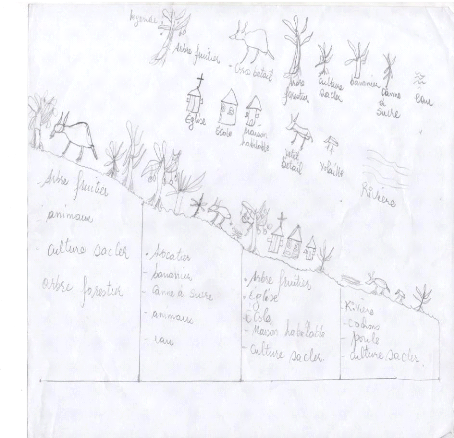 légende
Arbre fruitier
Gros bétail
Arbre forestier
culture sacler
bananier
canne à sucre
Eau
Eglise
Ecole
Maison habitable
petit bétail
Volaille
Rivière
Arbre fruitier
animaux
culture sacler
arbre forestier
- Avocatier
- bananier
- Canne à Sucre
- animaux
- eau
- Arbre fruitier
- Eglise
- Ecole
- Maison habitable
- culture sacler
Rivière
- cochons
- poule
- culture sacler